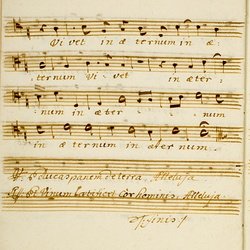 Vivet in æternum in æ
ternum Vivet in æter
num in æternum
in æternum in æternum
℣. Educas panem de terra. Alleluja
℟. Et Vinum lætificet Cor hominis. Alleluja.
Finis